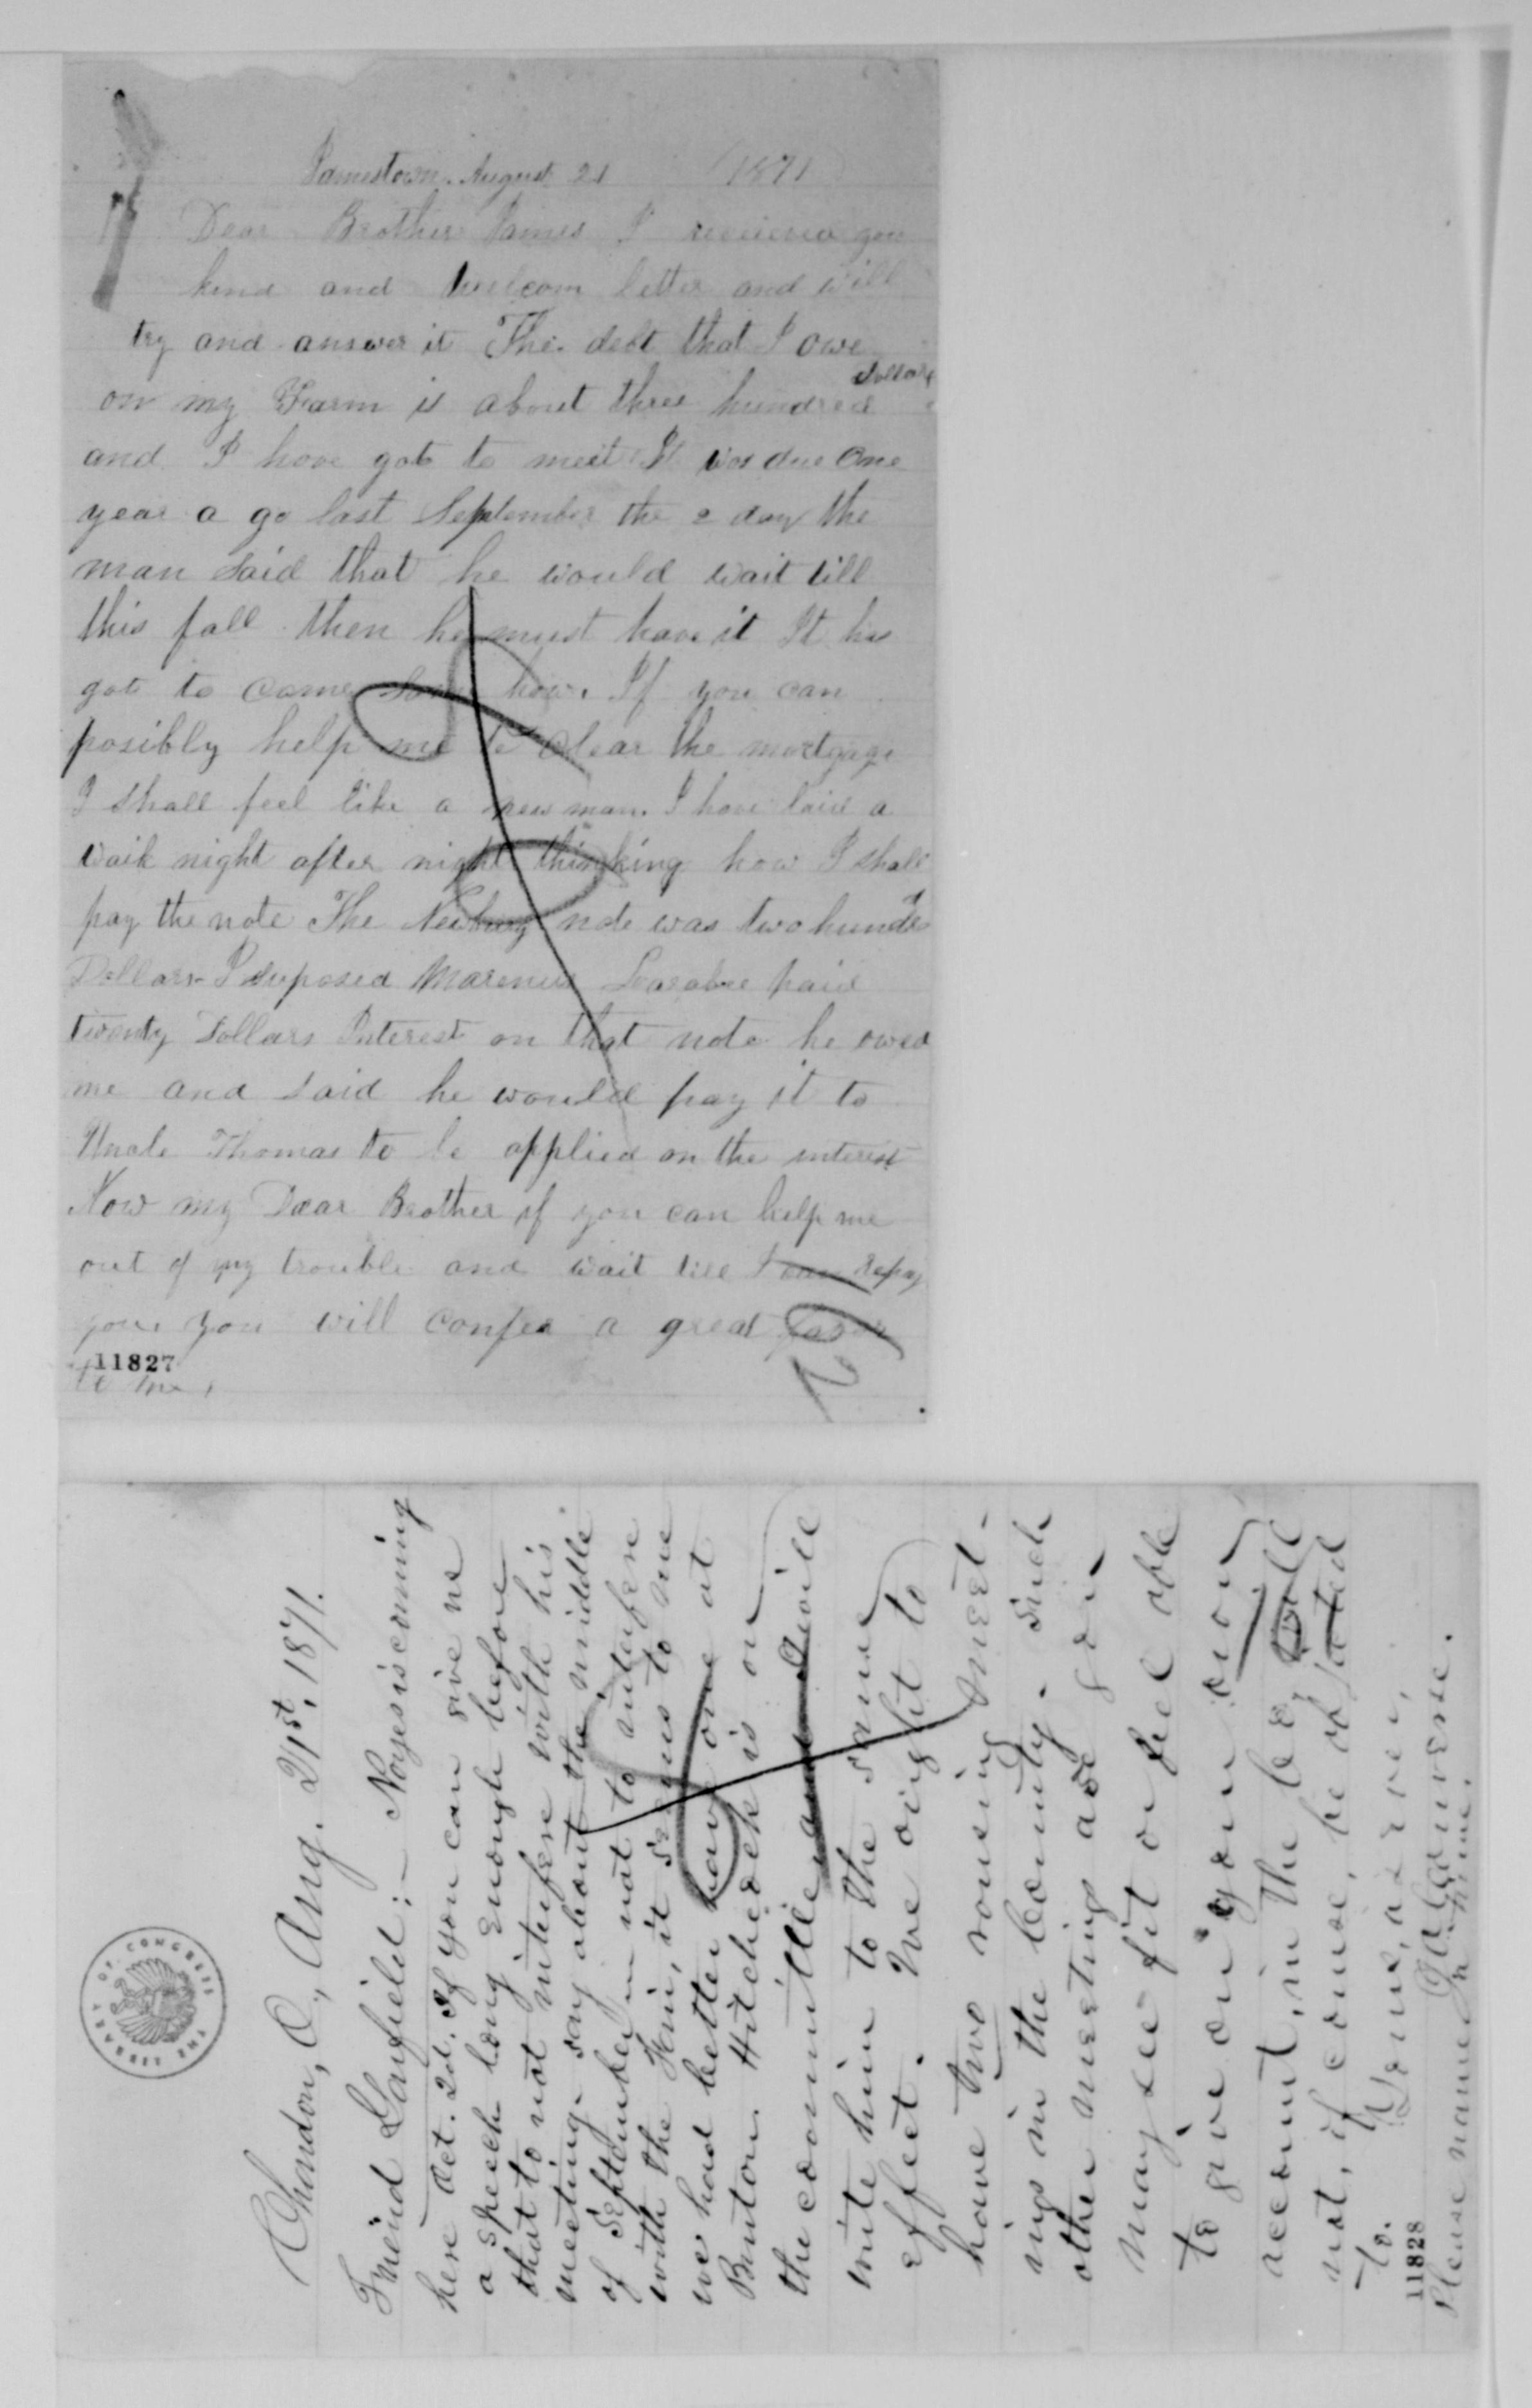 Jamestown. August 21 (1871)
Dear Brother James I received you
kind and welcom letter and will
try and answer it The debt that I owe
on my Farm is about three hundred Dollars
and I have got to meet It was due One
year a go last September the 2 day the
man said that he would wait till
this fall then he must have it It has
got to come some how. If you can
posibly help me to clear the mortgage
I shall feel like a new man. I have laid a
waik night after night thinking how I shall
pay the note The Newburg note was two hundred
Dollars I suposed Marenus Learabee paid
twenty Dollars Interest on that note he owed
me and said he would pay it to
Uncle Thomas to be applied on the interest
Now my Dear Brother if you can help me
out of my trouble and wait till I can repay
you you will confer a great favor
11827
to me,
Chardon, O., Aug. 21st, 1871.
Friend Garfield:- Noyes is coming
here Oct. 2d. If you can give us
a speech long enough before
that to not interfere with his
meeting- say about the middle
of September, in not to interfere
with the Fair, it seems to me
we had better have one at
Burton. Hitchcock is on
the committee and I will
write him to the same
effect. We ought to
have two rousing meet-
ings in the County. Such
other meetings as you
may see fit or feel able
to give on your own
account, in the Co., will
not, of course, be objected
to. Yours, as ever,
J O Converse.
11828
Please name your time.
THE LIBRARY OF CONGRESS